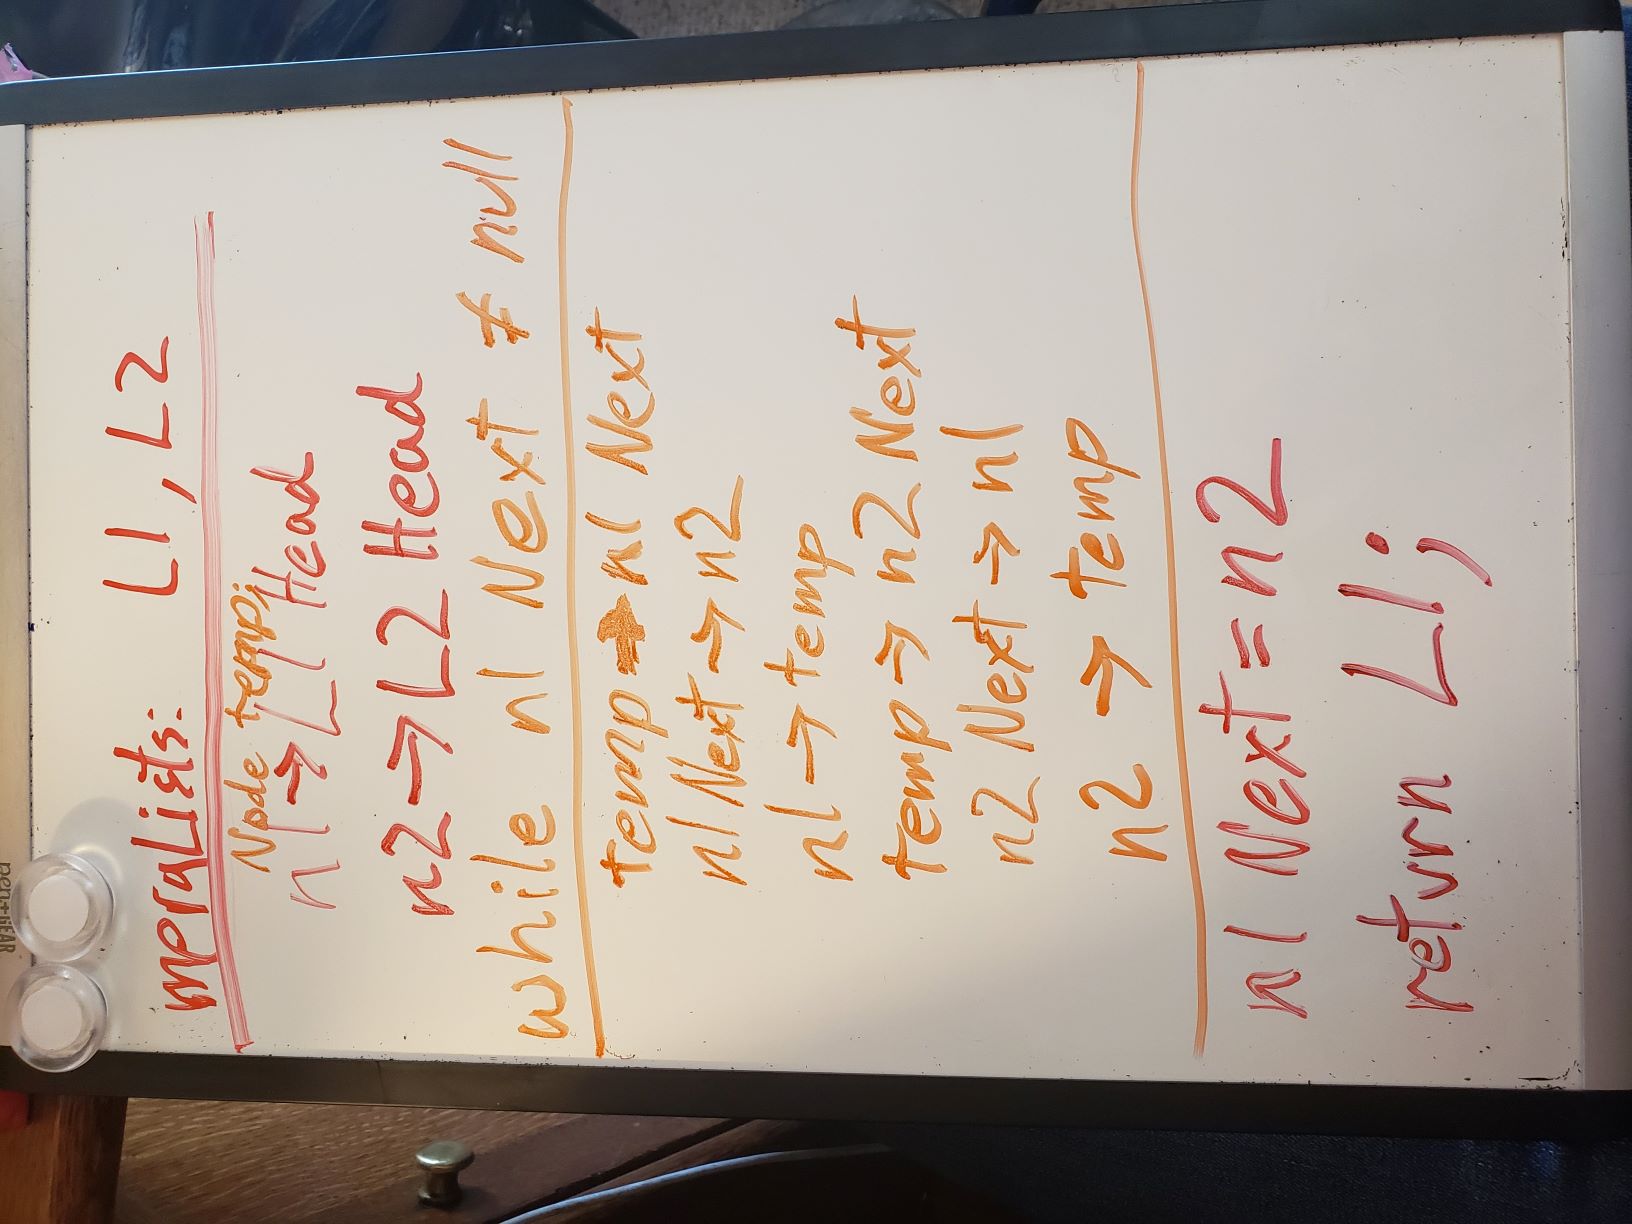 pen+GEAR
mergLists: L1, L2
Node temp;
n1 → L1 Head
n2 → L2 Head
while n1 Next ≠ null
temp → n1 Next
n1 Next → n2
n1 → temp
temp → n2 Next
n2 Next → n1
n2 → temp
n1 Next = n2
return L1;